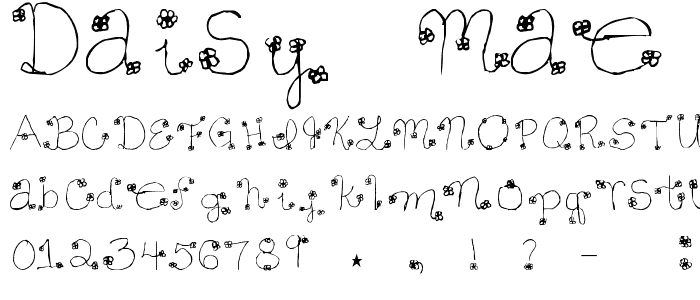 Daisy Mae
ABCDEFGHIJKLMNOPQRSTU
abcdefghijklmnopqrstu
0123456789 . , ! ? - :